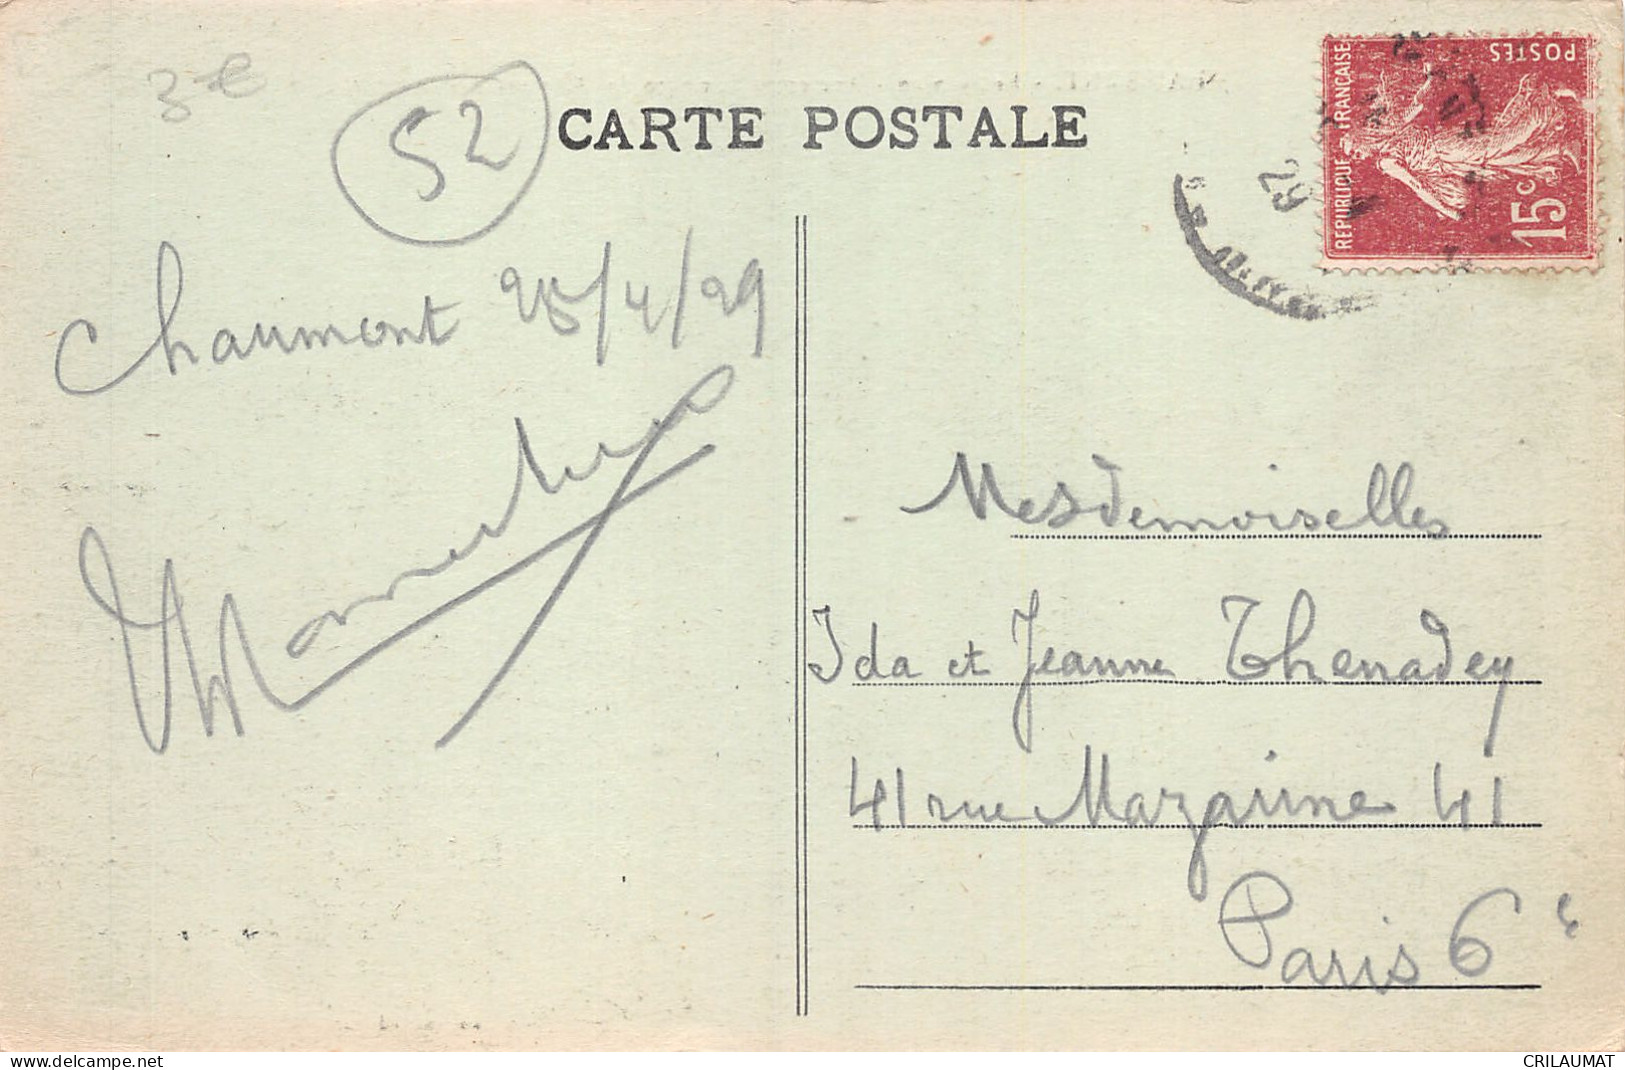 3 €
52
CARTE POSTALE
RÉPUBLIQUE FRANÇAISE
POSTES
15c
29
Chaumont 25/4/29
Mesdemoiselles
Ida et Jeanne Thenadey
41 rue Mazarine 41
Paris 6e
www.delcampe.net
CRILAUMAT